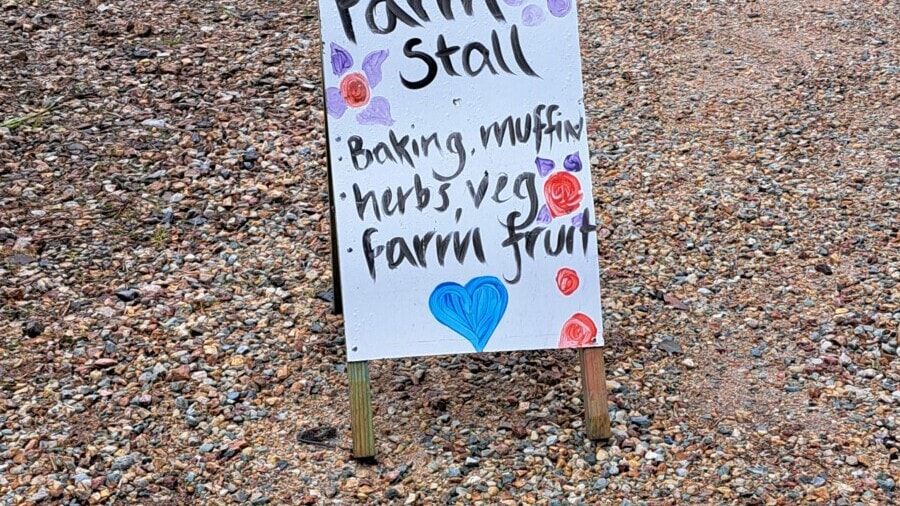 Farm
Stall
· Baking, muffin
· herbs, veg
· farm fruit